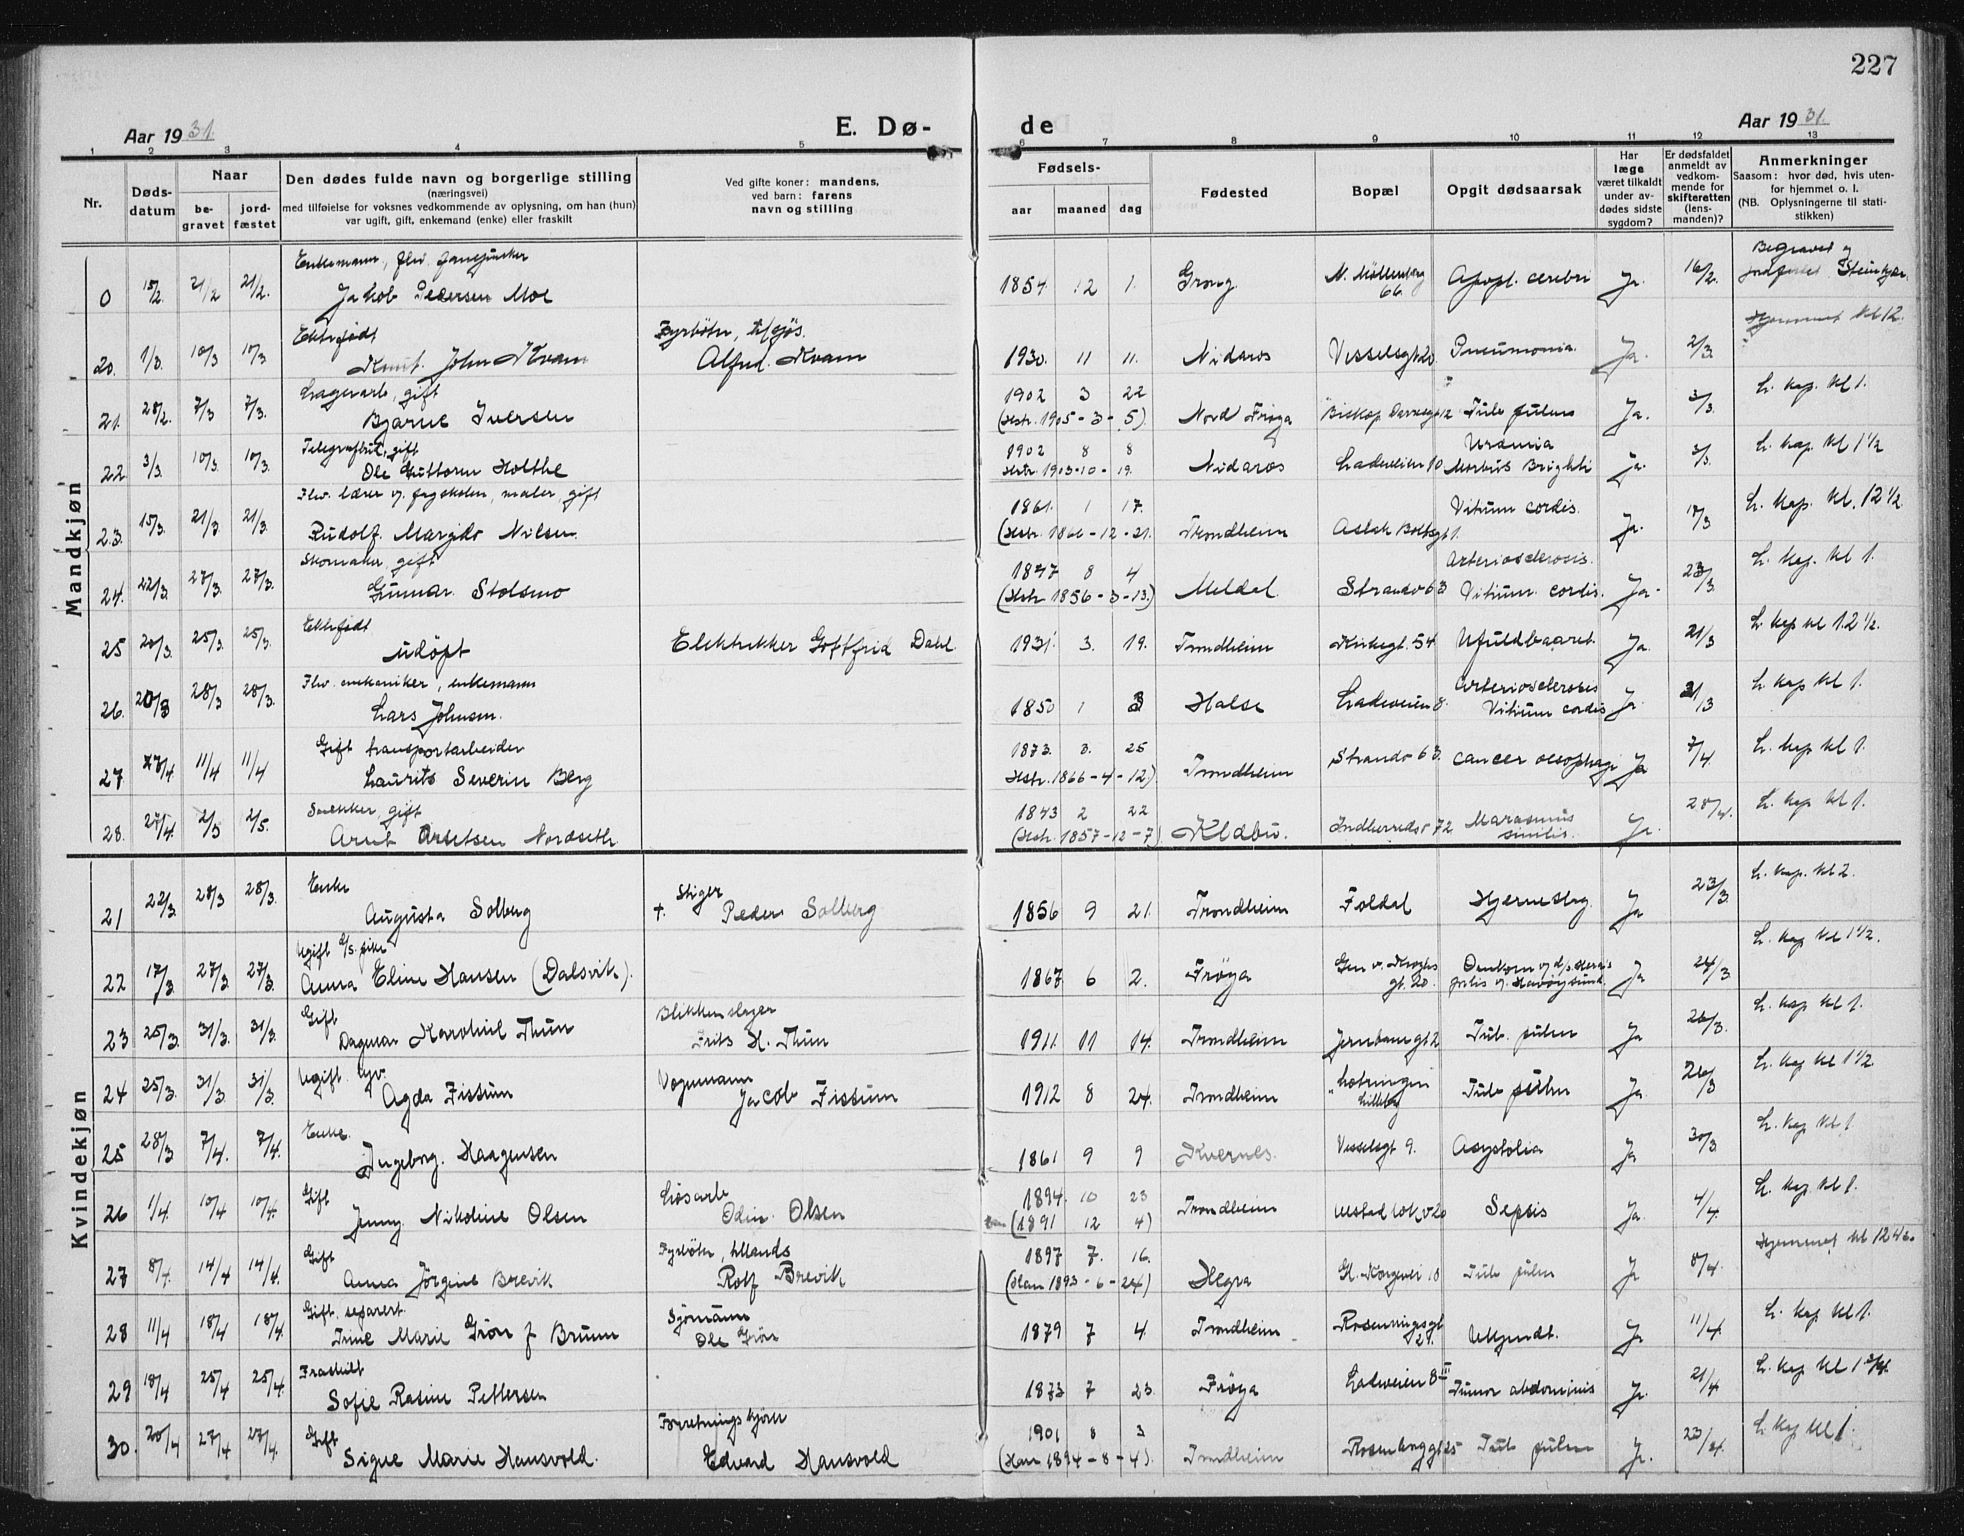 227
Aar 1931. E. Dø- de Aar 1931.
1 2 3 4 5 6 7 8 9 10 11 12 13
Nr. Døds-datum Naar be-gravet jord-fæstet Den dødes fulde navn og borgerlige stilling (næringsvei) med tilføielse for voksnes vedkommende av oplysning, om han (hun) var ugift, gift, enkemand (enke) eller fraskilt Ved gifte koner: mandens, ved barn: farens navn og stilling Fødsels- aar maaned dag Fødested Bopæl Opgit dødsaarsak Har læge været tilkaldt under av-dødes sidste sygdom? Er dødsfaldet anmeldt av vedkom-mende for skifteretten (lens-manden)? Anmerkninger Saasom: hvor død, hvis uten-for hjemmet o. l. (NB. Oplysningerne til stati-stikken)
Mandkjøn
0 15/2. 21/2 21/2. Enkemann, Jakob Pedersen Moe 1854 12 1. Grong N. Møllenberg 66. Apopl. cerebri Ja. 16/2. Begravet og jordfestet Steinkjer.
20. 1/3. 10/3 10/3 Ektefødt Knut John Kvam Fyrbøter, Alfred Kvam 1930. 11 11. Nidaros Vesselsgt 20 Pneumonia. Ja. 2/3. Hjemmet kl 12.
21. 28/2. 7/3 7/3. Lagerarb, gift Bjarne Iversen 1902 3 22 (Hstr. 1905-3-5) Nord Frøya Biskop Darresgt 2 Tub pulm Ja. 3/3. L. kap. kl 1.
22 3/3. 10/3 10/3. gift Ole Guttorm Holthe 1902 8 8 Hstr. 1903-10-19. Nidaros Ladeveien 10 Uremia Morbus Brighti ja. 3/3. L. kap. kl 1 1/2
23. 15/3. 21/3 21/3. Flv. lærer v. fagskolen, maler, gift Rudolf Nilsen. 1861. 1 17. (Hstr. 1866-12-21. Trondheim Aslak Boltsgt 1. Vitium cordis. Ja. 17/3 L. kap. kl. 12 1/2
24. 22/3. 27/3. 27/3. Skomaker, gift Gunnar Stolsmo 1847 8 4 (Hstr 1856-3-13.) Meldal Strandv 63 Arteriosclerosis. Vitium cordis. Ja. 23/3. L. kap. kl 1.
25 20/3. 25/3. 25/3. Ektefødt udøpt Elektrikker Gottfrid Dahl. 1931. 3. 19. Trondheim Kirkegt. 54 Ufuldbaaret Ja. 21/3 L. kap kl 12 1/2.
26. 20/3 28/3 28/3. Flv. mekaniker, enkemann Lars Johnsen. 1850 1 3 Halse Ladeveien 8. Arteriosclerosis Vitium cordis Ja. 21/3 L. kap kl 1.
27 11/4 11/4 Gift transportarbeider Laurits Severin Berg 1873. 3. 25 Hstr. 1866-4-12) Trondheim Strandv 63. cancer oesophagi Ja 7/4. L. kap kl 1.
28. 27/4. 2/5 2/5. Snekker, gift Arnt Arntsen Nordseth. 1843 2 22 (Hstr. 1857-12-7) Klæbu. Indherredsv 72 Marasmus senilis. Ja. 28/4. L. kap kl 1.
Kvindekjøn
21 22/3. 28/3 28/3. Enke Augusta Solberg †. Stiger Peder Solberg 1856 9 21. Trondheim Foldal Hjerneslag Ja 23/3 L. kap. kl 2.
22 17/3. 27/3 27/3. Ugift Anna Eline Hansen (Dalsvik). 1867 6 2. Frøya Gen v. Kroghs gt. 20. Omkom v. Havøysund. Ja 24/3 L. kap kl 1 1/2.
23 25/3. 31/3. 31/3. Gift Dagmar Thun Blikkenslager Frits H. Thun 1911. 11 14. Trondheim Jernbanegt 2 Tub. pulm Ja 26/3. L. kap kl 1.
24 25/3. 31/3. 31/3. Ugift. Agda Fissum Vognmann Jacob Fissum 1912 8 24. Trondheim Tub pulm Ja 26/3 L. kap kl 1 1/2
25 28/3 7/4. 7/4. Enke. Ingeborg. Haagensen 1861 9 9 Kvernes. Vesselsgt 9. Asystolia Ja 30/3 L. kap kl 1
26 1/4. 10/4 10/4. Gift Jenny Nikoline Olsen Løsarb Odin Olsen 1894. 10 23 (1891 12 4) Trondheim Sepsis Ja. 4/4. L. kap. kl 1.
27 8/4. 14/4 14/4. Gift Anna Jørgine Brevik Fyrbøter, Rolf Brevik 1897 7. 16. (Han 1893-6-24) Hegra Gl. Kongevei 18 Tub pulm Ja 8/4. Hjemmet kl 12 45.
28 11/4 18/4 18/4. Gift. separert. Trine Marie Grøn f Bruun Sjømann Ole Grøn 1879 7 4. Trondheim Rosenborgsgt 21. Ukjendt. Ja 11/4. L. kap kl 1.
29 18/4 25/4 25/4. Fraskilt Sofie Rasine Pettersen 1873 7 23. Frøya Ladeveien 8 III Tumor abdominis Ja. 21/4 L. kap kl 1 3/4.
30. 20/4 27/4 27/4. Gift Signe Marie Hansvold. Forretningskjører Edvard Hansvold 1901 8 3 (Han 1894-8-4). Trondheim Rosenborggt 25 Tub pulm Ja. 23/4. L. kap kl 1.